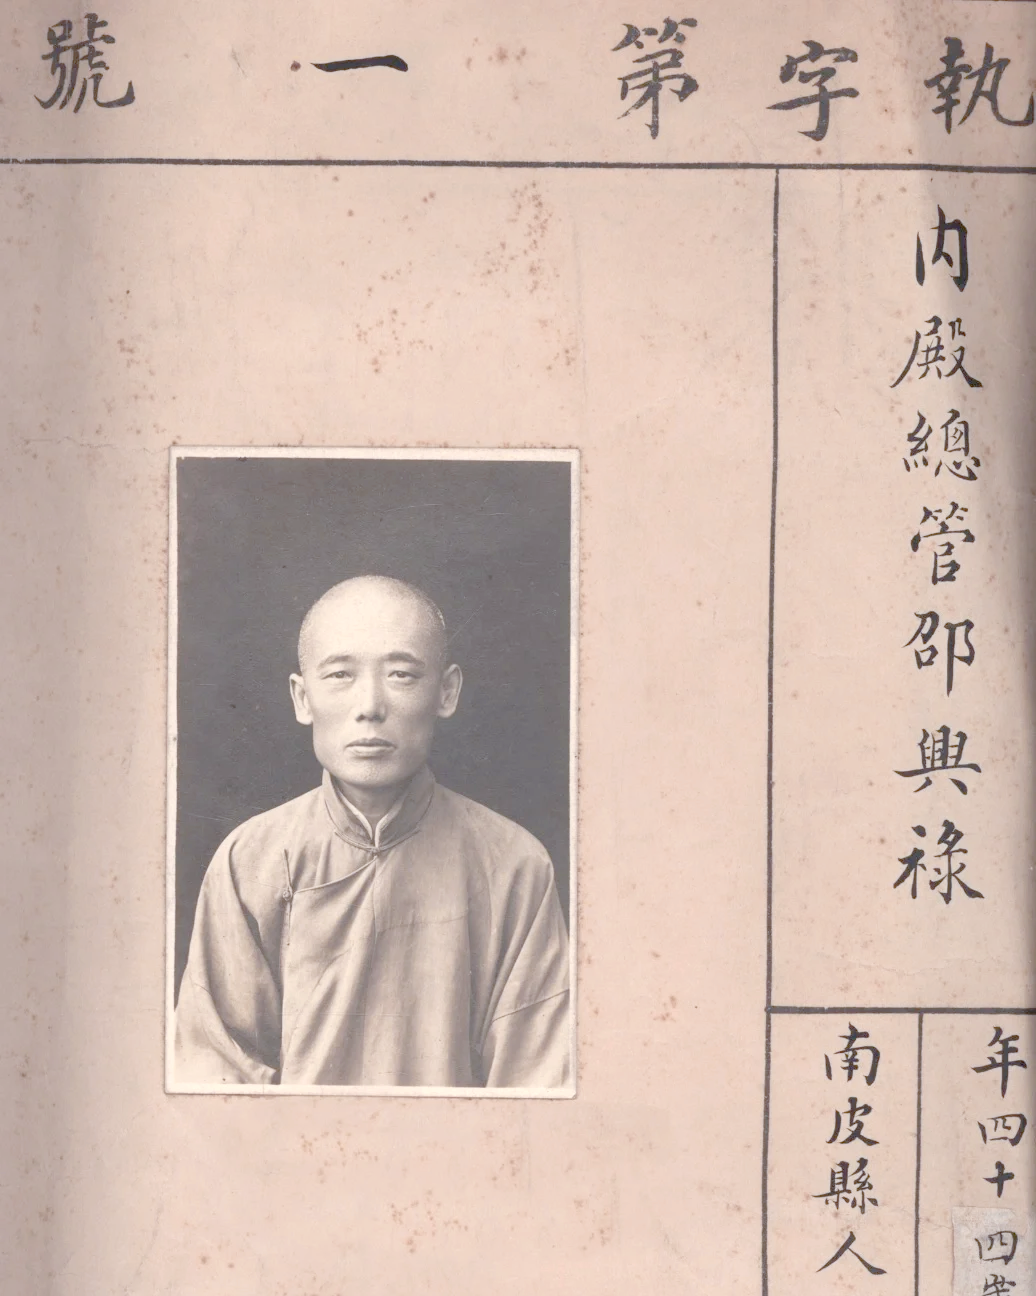 執字第一號
内殿總管邵興祿
年四十四歲
南皮縣人